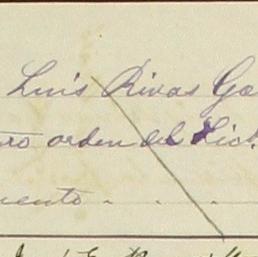 Luis Rivas Ga
ro orden del Lic.
uento . . .